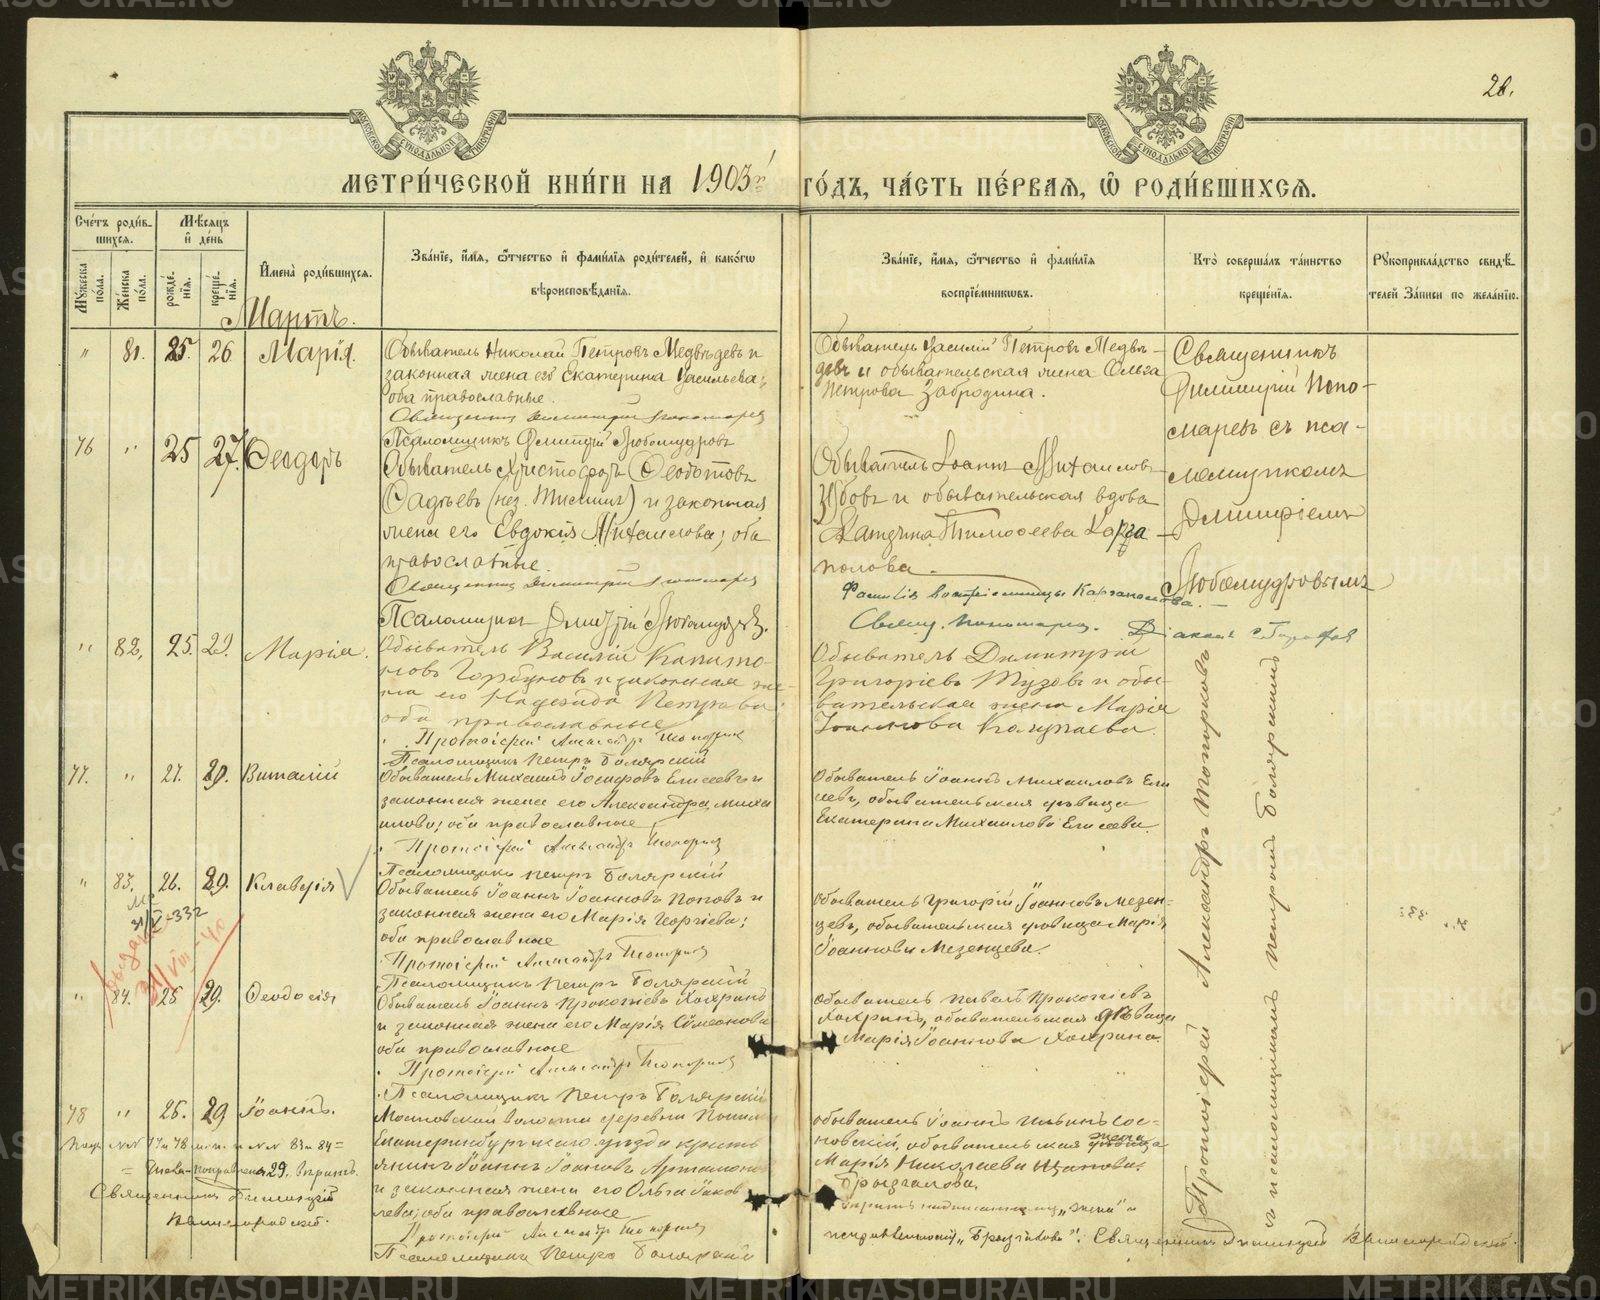 26.
МЕТРИ́ЧЕСКОЙ КНИ́ГИ НА 1903й ГО́ДЪ, ЧА́СТЬ ПЕ́РВАЯ, Ѡ РОДИ́ВШИХСЯ.
Сче́тъ роди́в-
шихся.
Мѣ́сяцъ
и́ де́нь
Му́жеска по́ла.
Же́нска по́ла.
рожде́-
нія.
креще́-
нія.
И́мена̀ роди́вшихся.
Зва́ніе, и́мя, ѻ́тчество и́ фами́лія роди́телей, и́ како́гѡ
вѣроисповѣ́данія.
Зва́ніе, и́мя, ѻ́тчество и́ фами́лія
воспріе́мниковъ.
Кто̀ соверша́лъ та́инство
креще́нія.
Рукоприкла́дство свидѣ́-
телей За́писи по жела́нію.
Мартъ.
" 81. 25. 26 Марія.
Обыватель Николай Петровъ Медвѣдевъ и
законная жена его Екатерина Васильева;
оба православные.
Священникъ Димитрій Пономаревъ
Псаломщикъ Дмитрій Любомудровъ
Обыватель Василій Петровъ Медвѣ-
девъ и обывательская жена Ольга
Петрова Забродина.
Священникъ
Димитрій Поно-
маревъ съ пса-
ломщикомъ
Дмитріемъ
Любомудровымъ
76 " 25 27. Ѳеодоръ
Обыватель Христофоръ Ѳеодотовъ
законная
жена его Евдокія Михаилова; оба
православные.
Священникъ Димитрій Пономаревъ
Псаломщикъ Дмитрій Любомудровъ.
Обыватель Іоаннъ Михаиловъ
Зубовъ и обывательская вдова
Екатерина Тимофеева Карга-
полова.
Фамилія воспріемницы Каргаполова.
Свящ. Пономаревъ. Діаконъ
" 82. 25. 29. Марія.
Обыватель Василій Капито-
новъ Горбуновъ и законная же-
на его Надежда Петрова
оба православные
Протоіерей Александръ Топорковъ
Псаломщикъ Петръ Боярскій
Обыватель Димитрій
Григоріевъ Тузовъ и обы-
вательская жена Марія
Іоаннова Колупаева.
77. " 27. 29. Виталій
Обыватель Михаилъ Іосифовъ Елисеевъ и
законная жена его Александра Миха
илова; оба православные
Протоіерей Александръ Топорковъ
Псаломщикъ Петръ Боярскій
Обыватель Іоаннъ Михаиловъ Ели
сеевъ, обывательская дѣвица
Екатерина Михаилова Елисеева.
" 83. 26. 29. Клавдія
Обыватель Іоаннъ Іоанновъ Поповъ и
законная жена его Марія Георгіева;
оба православные
Протоіерей Александръ Топорковъ
Псаломщикъ Петръ Боярскій
Обыватель Григорій Іоанновъ Мезен-
цевъ, обывательская дѣвица Марія
Іоаннова Мезенцева.
" 84. 25 29. Ѳеодосія
Обыватель Іоаннъ Прокопіевъ Хохринъ
и законная жена его Марія Симеонова
оба православные
Протоіерей Александръ Топорковъ
Псаломщикъ Петръ Боярскій
Обыватель Павелъ Прокопіевъ
Хохринъ, обывательская дѣвица
Марія Іоаннова Хохрина.
78 " 26. 29 Іоаннъ.
волости деревни
Екатеринбургскаго уѣзда кресть
янинъ Іоаннъ Іоановъ
и законная жена его Ольга Іаков
лева; оба православные
Протоіерей Александръ Топорковъ
Псаломщикъ Петръ Боярскій
обыватель Іоаннъ Ильинъ Сос-
новскій, обывательская жена
Марія Николаева
Брызгалова.
Протоіерей Александръ Топорковъ
съ псаломщикомъ Петромъ Боярскимъ
"Брызгалова". Священникъ Димитрій
Священникъ Димитрій